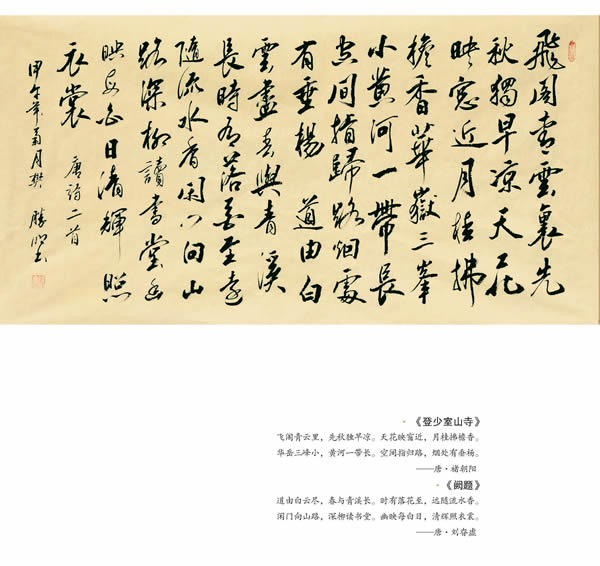 飛閣青雲裏先
秋獨早涼天花
映窓近月桂拂
檐香華嶽三峯
小黄河一帶長
空间指歸路烟處
有垂楊 道由白
雲盡春與青溪
長時有落花至遠
隨流水香闲门向山
路深柳讀書堂幽
映每白日清輝照
衣裳 唐詩二首
甲午年菊月樊
《登少室山寺》
飞阁青云里，先秋独早凉。天花映窗近，月桂拂檐香。
华岳三峰小，黄河一带长。空间指归路，烟处有垂杨。
——唐·褚朝阳
《阙题》
道由白云尽，春与青溪长。时有落花至，远随流水香。
闲门向山路，深柳读书堂。幽映每白日，清辉照衣裳。
——唐·刘昚虚